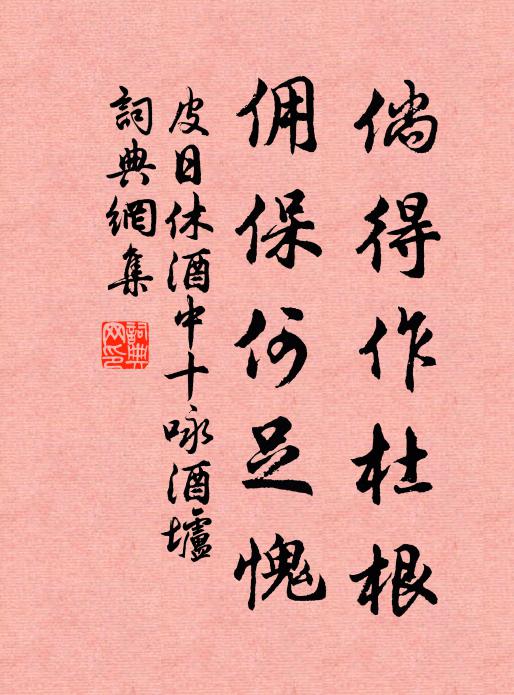 倘得作杜根
佣保何足愧
皮日休酒中十咏酒壚
詞典網集
詞典网印